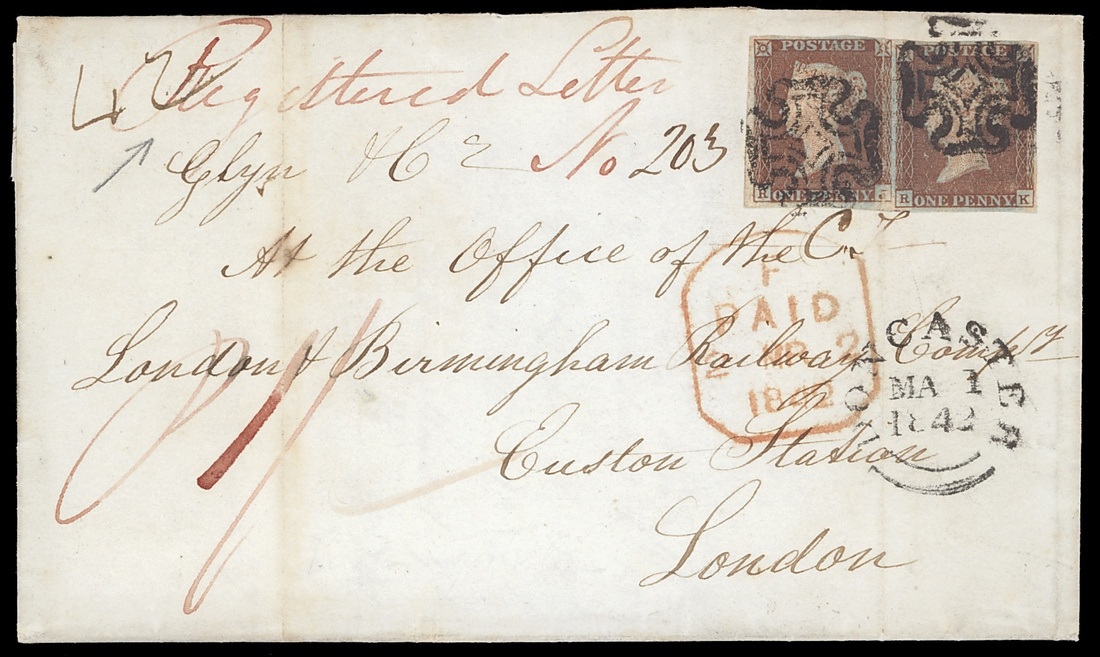 Registered Letter
Glyn & Co No 203
At the Office of the
London & Birmingham Railway Compy
Euston Station
London
POSTAGE
R J
ONE PENNY
POSTAGE
R K
ONE PENNY
PAID
2
1842
DONCASTER
MA 1
1842